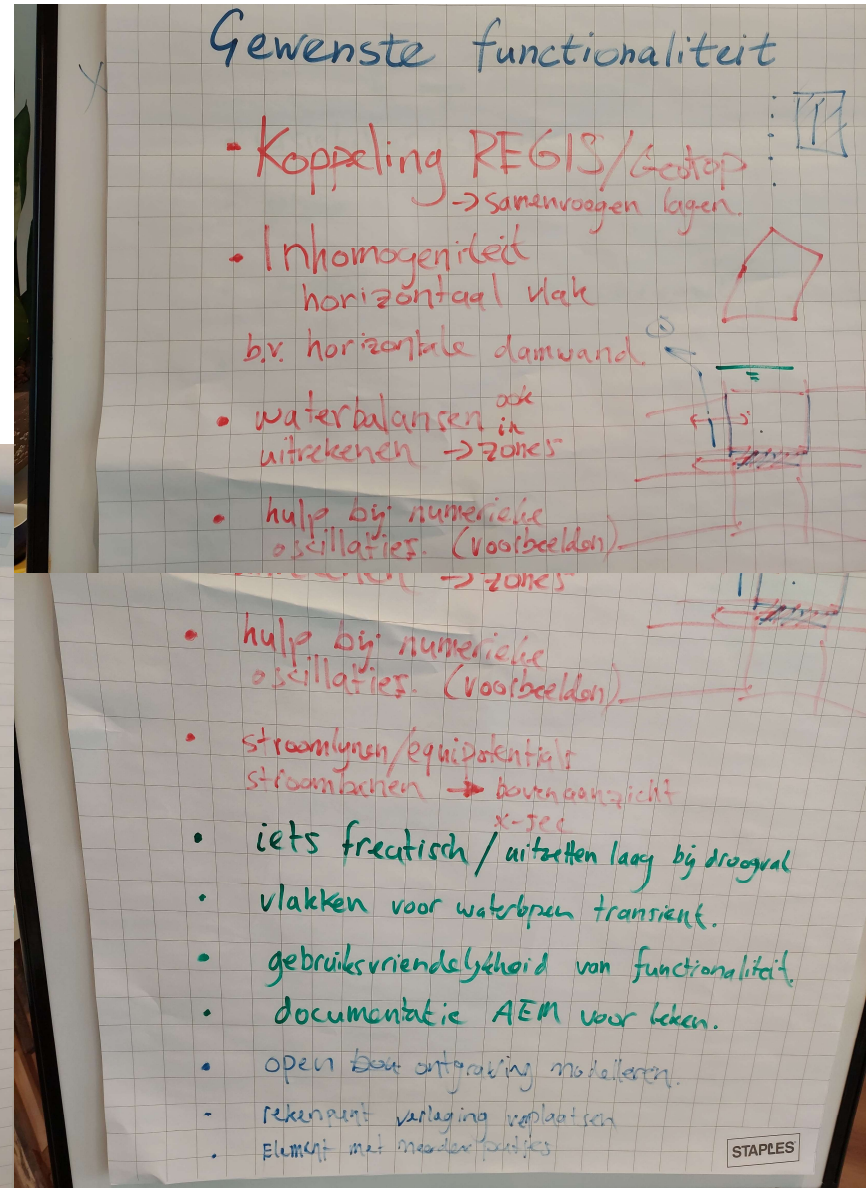 Gewenste functionaliteit
- Koppeling REGIS/Geotop
-> samenvoegen lagen.
• Inhomogeniteit
horizontaal vlak
b.v. horizontale damwand.
• waterbalansen ook in
uitrekenen -> zones
• hulp bij numerieke
oscillaties. (voorbeelden)
-> zones
• hulp bij numerieke
oscillaties. (voorbeelden)
• stroomlijnen/equipotentials
stroombanen -> bovenaanzicht
x-sec
• iets freatisch / uitzetten laag bij droogval
• vlakken voor waterlopen transient.
• gebruiksvriendelijkheid van functionaliteit.
• documentatie AEM voor leken.
• open bouw ontgraving modelleren.
- rekenpunt verlaging verplaatsen
• Element met meerdere putjes
STAPLES